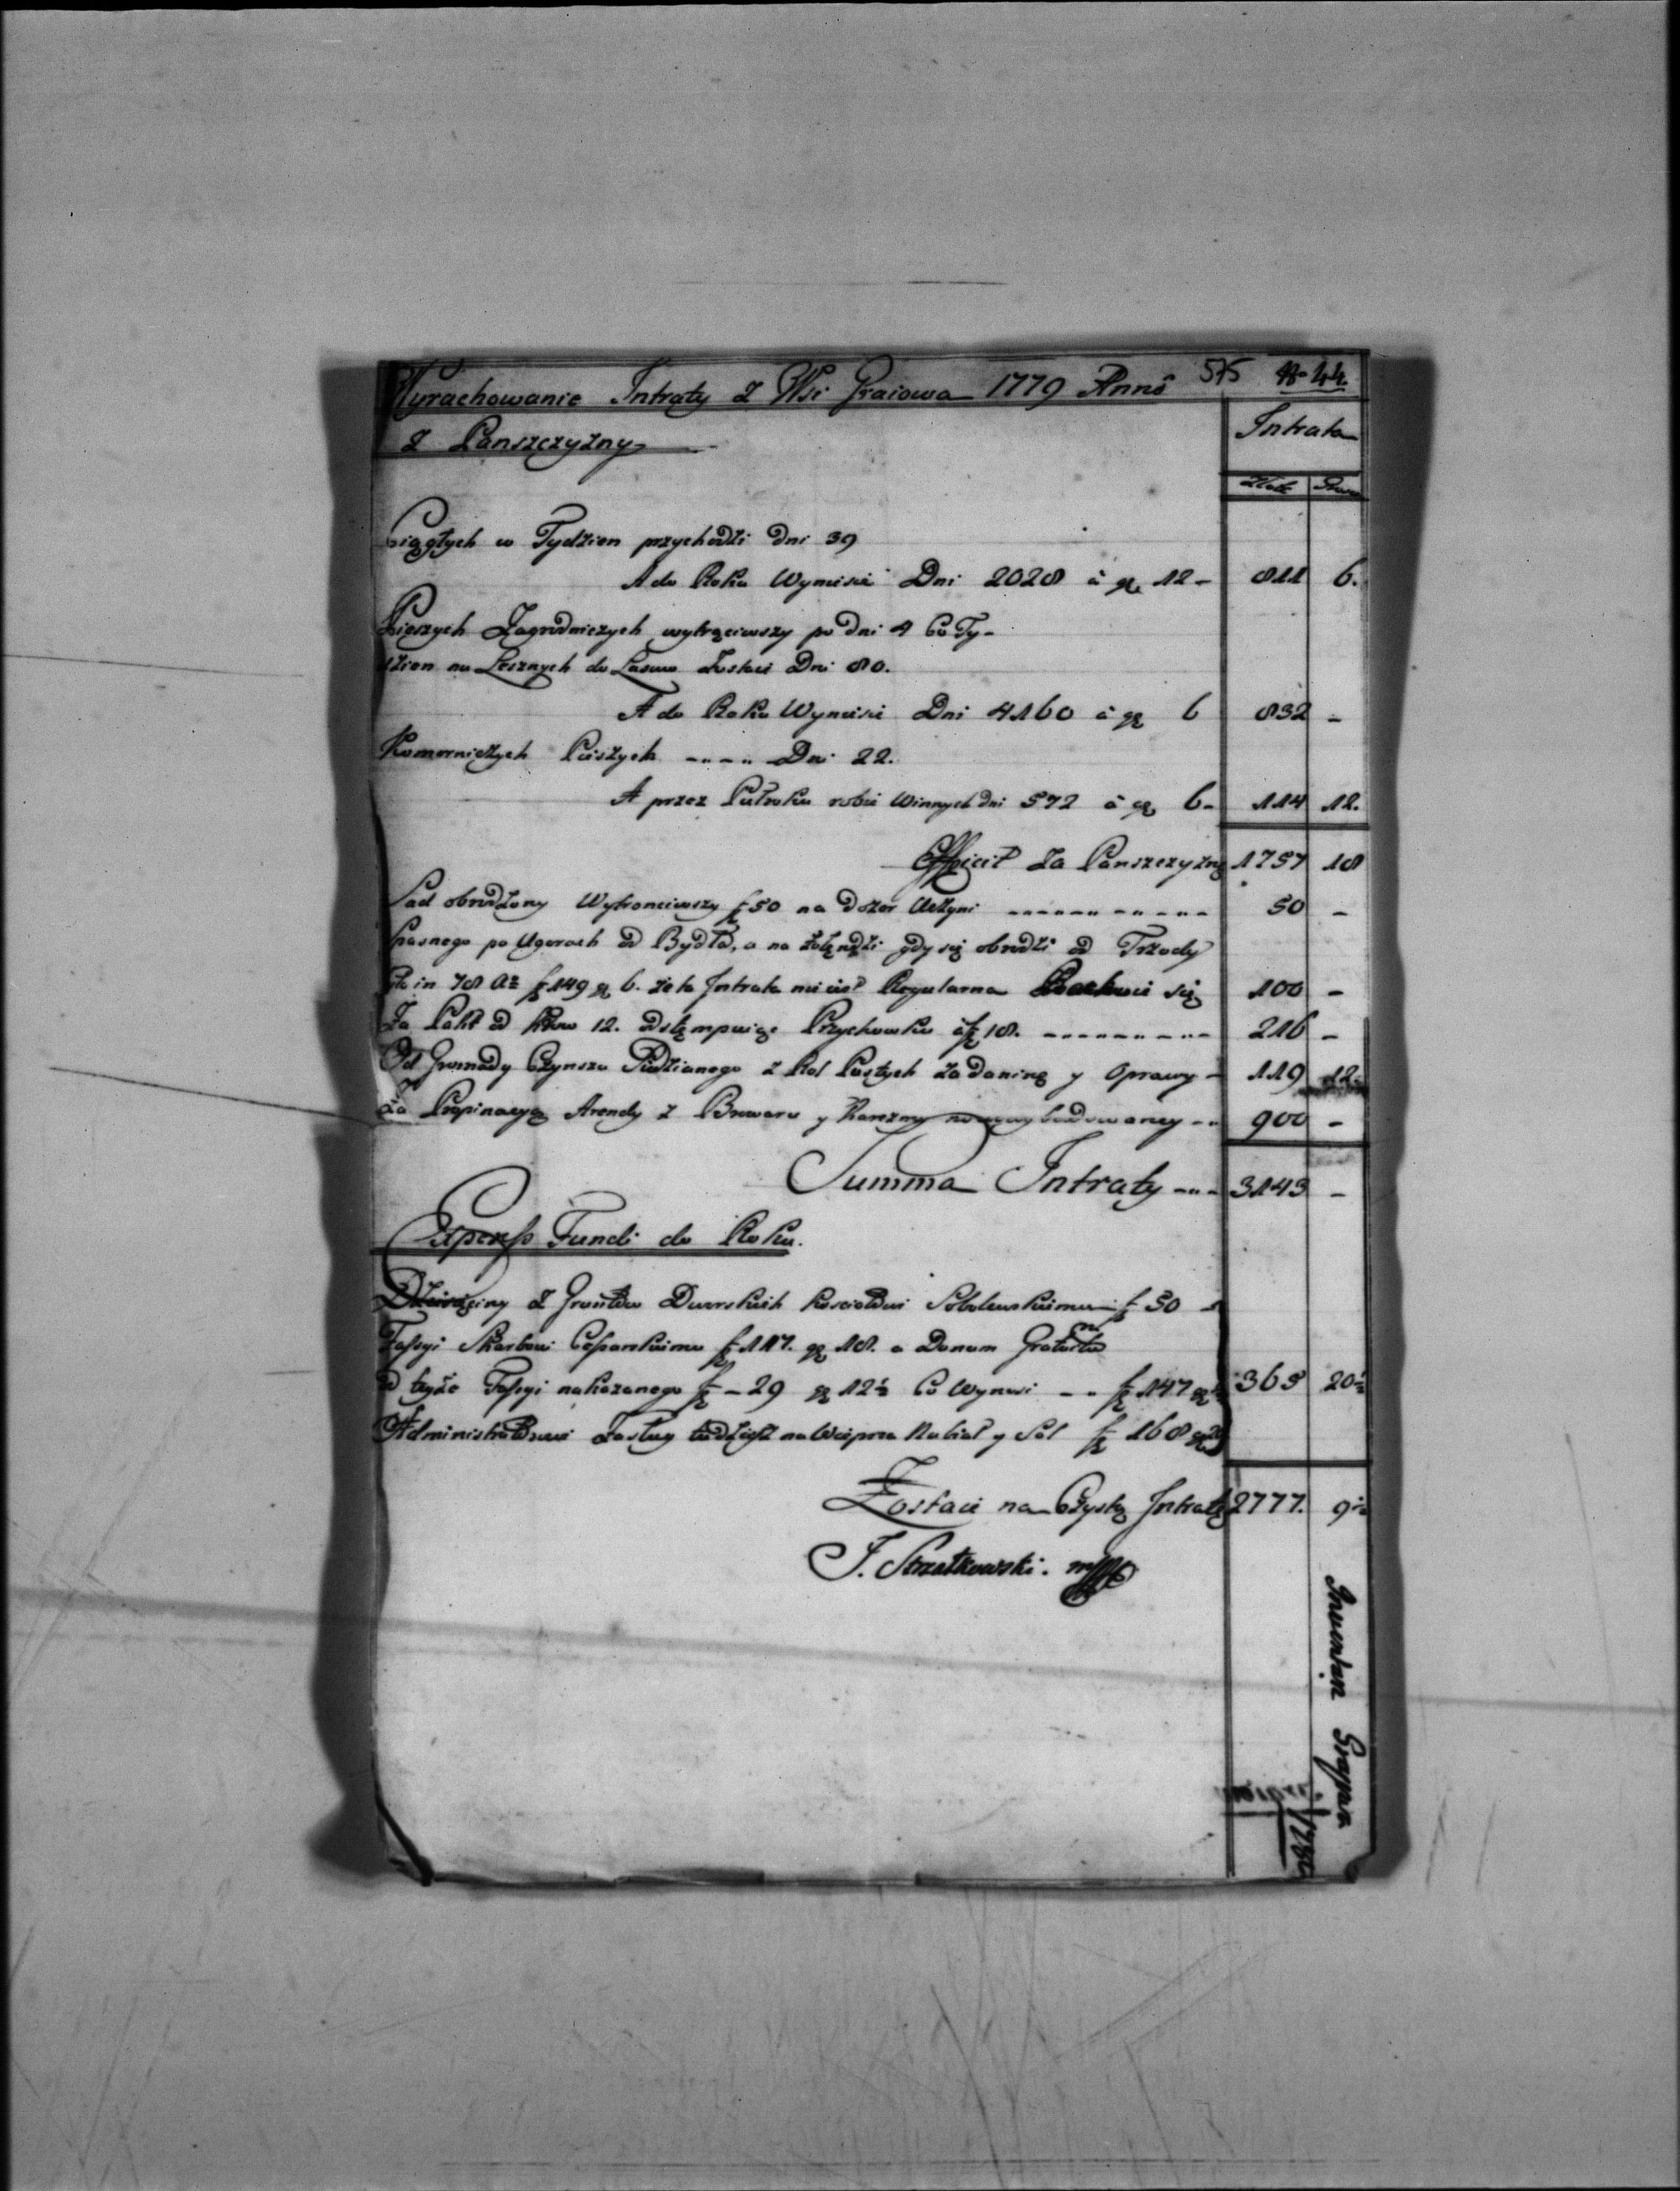 Wyrachowanie Intraty z Wsi Graiowa 1779 Anno 575 No 44.
z Panszczyzny Intrata
Złote Grosze
Ciągłych w Tydzien przychodzi Dni 39
A do Roku Wyniesie Dni 2028 à gr 12 - 811 6.
Pieszych Zagrodniczych wytrąciwszy po Dni 4 Co Ty-
dzien na Lesnych do Lasow Zostaie Dni 80.
A do Roku Wyniesie Dni 4160 à gr 6 832 -
Komorniczych Pieszych Dni 22.
A przez Pułroku robić Winnych Dni 572 à gr 6 - 114 12.
Efficit Za Panszczyznę 1757 18
Sad obrodzony Wytronciwszy f 50 na Dozor Uczyni 50 -
Spasnego po Ugorach od Bydła, a na Żołędzi gdy się obrodzi od Trzody
in 78 f 149 gr 6. Ze ta Intrata nie iest Regularna Rachuie się 100 -
Za Pakt od Krow 12. Przychowku à f 18. 216 -
Od Gromady Czynszu z Rol Pustych za Daninę y Oprawy - 119 12.
Za Propinacyą Arendy z Browaru y Karczmy nowowybudowaney 900 -
Summa Intraty 3143 -
Expens Fundi do Roku.
Dziesięciny z Gruntow Dworskich Kosciołowi f 50 -
Fassyi Skarbowi Cesarskiemu f 117. gr 18. a Donum Gratuitum
od teyże Fassyi nakazanego f - 29 gr 12½ Co Wynosi f 147 gr 365 20½
Administratorowi Zasług tudziesz na Wieprza Nabiał y Sol f 168 gr 20
Zostaie na Czystą Intratę 2777. 9½
J. Strzałkowski. mpp
Inwentarz Grajowa
1780